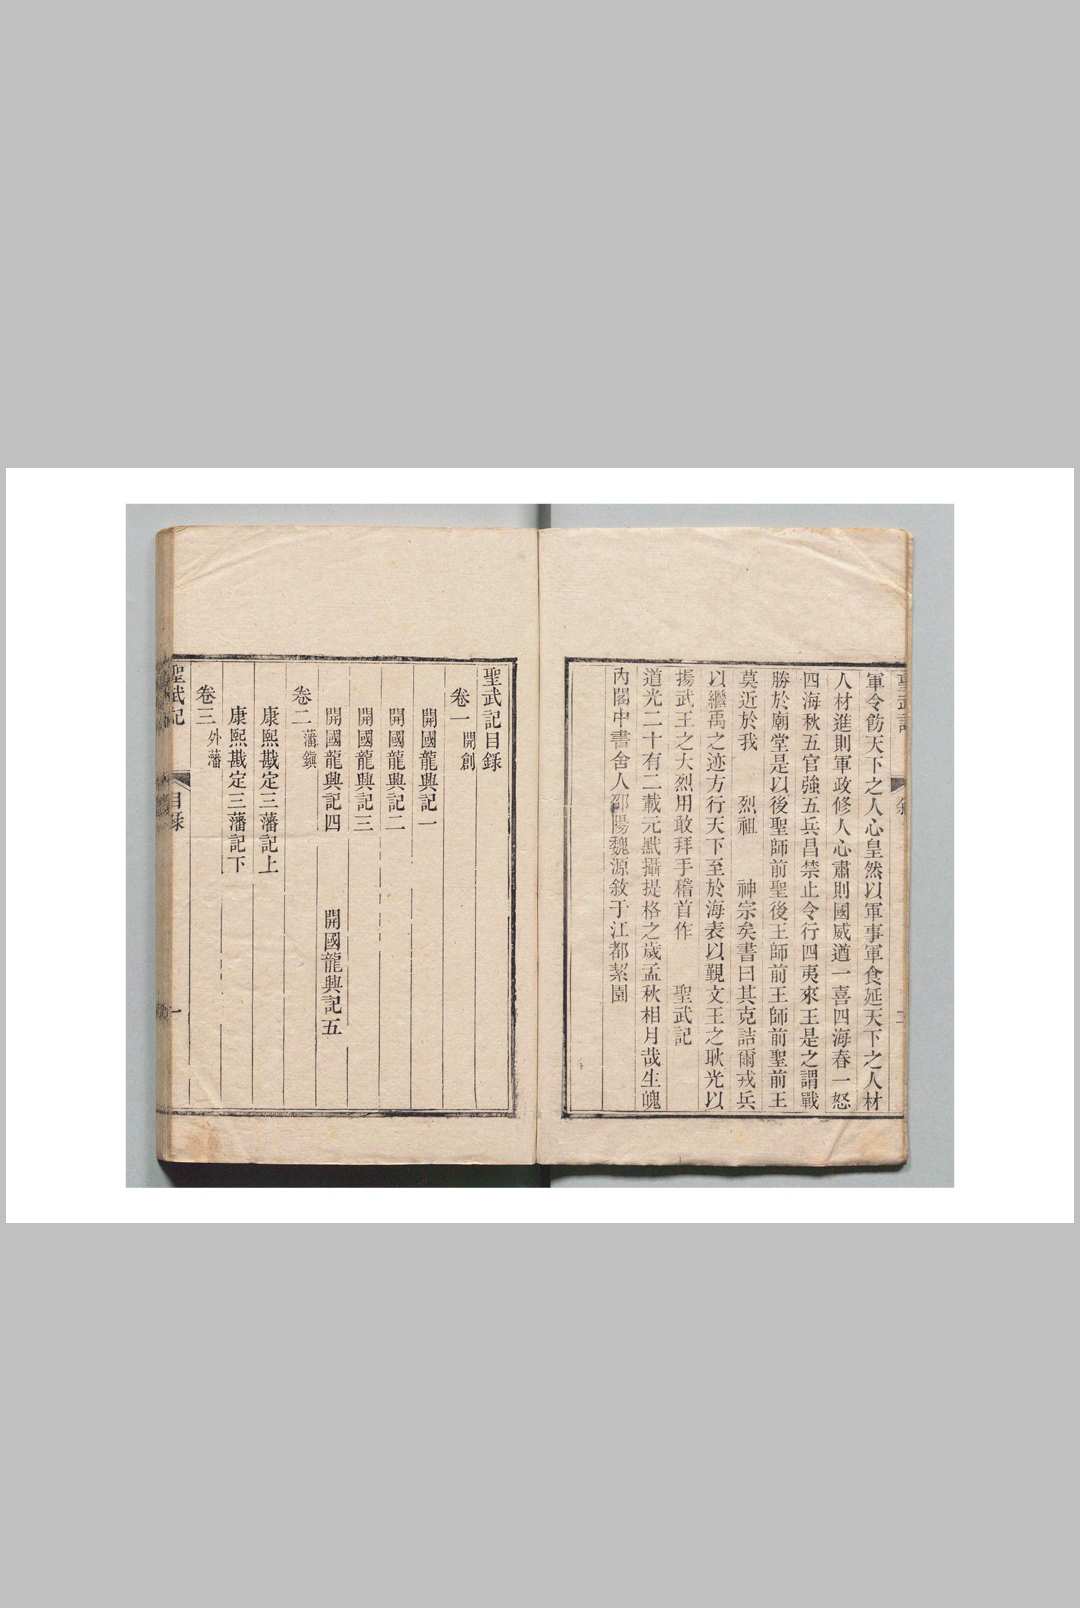 軍令飭天下之人心皇然以軍事軍食延天下之人材
人材進則軍政修人心肅則國威遒一喜四海春一怒
四海秋五官強五兵昌禁止令行四夷來王是之謂戰
勝於廟堂是以後聖師前聖後王師前王師前聖前王
莫近於我 烈祖 神宗矣書曰其克詰爾戎兵
以繼禹之迹方行天下至於海表以覲文王之耿光以
揚武王之大烈用敢拜手稽首作 聖武記
道光二十有二載元黓攝提格之歲孟秋相月哉生魄
內閣中書舍人邵陽魏源敘于江都絜園
聖武記目錄
卷一 開創
開國龍興記一
開國龍興記二
開國龍興記三
開國龍興記四 開國龍興記五
卷二 藩鎮
康熙戡定三藩記上
康熙戡定三藩記下
卷三 外藩
聖武記 目錄 一